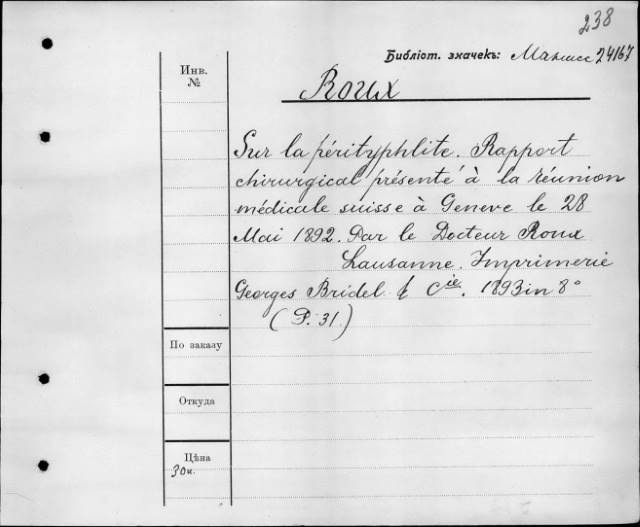 238
Библіот. значекъ: 24167
Инв.
№
Roux
Sur la pérityphlite. Rapport
chirurgical présenté à la réunion
médicale suisse à Geneve le 28
Mai 1892. Par le Docteur Roux
Lausanne. Imprimerie
Georges Bridel & Cie. 1893 in 8°
(P. 31.)
По заказу
Откуда
Цѣна
30к.